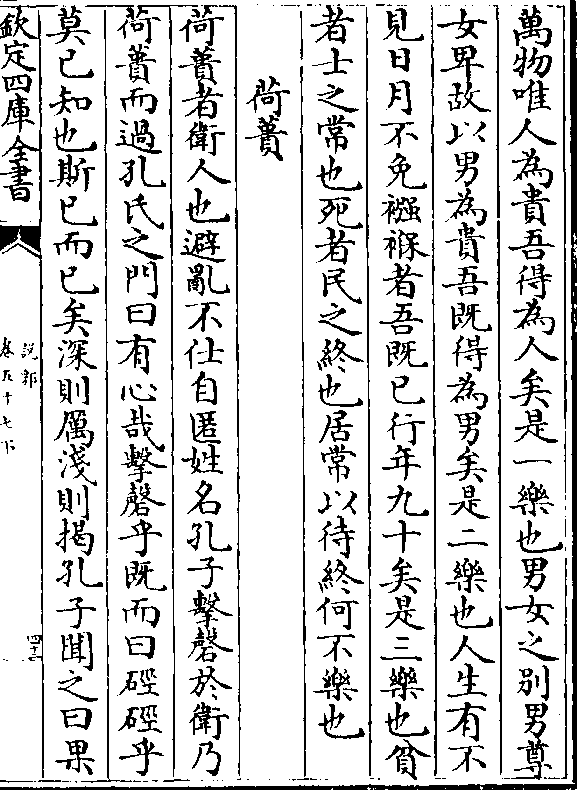 萬物唯人為貴吾得為人矣是一樂也男女之别男尊
女卑故以男為貴吾既得為男矣是二樂也人生有不
見日月不免襁褓者吾既已行年九十矣是三樂也貧
者士之常也死者民之終也居常以待終何不樂也
荷蕢
荷蕢者衛人也避亂不仕自匿姓名孔子擊磬於衛乃
荷蕢而過孔氏之門曰有心哉擊磬乎既而曰硜硜乎
莫已知也斯已而已矣深則厲淺則揭孔子聞之曰果
欽定四庫全書
說郛
卷五十七下
四十三